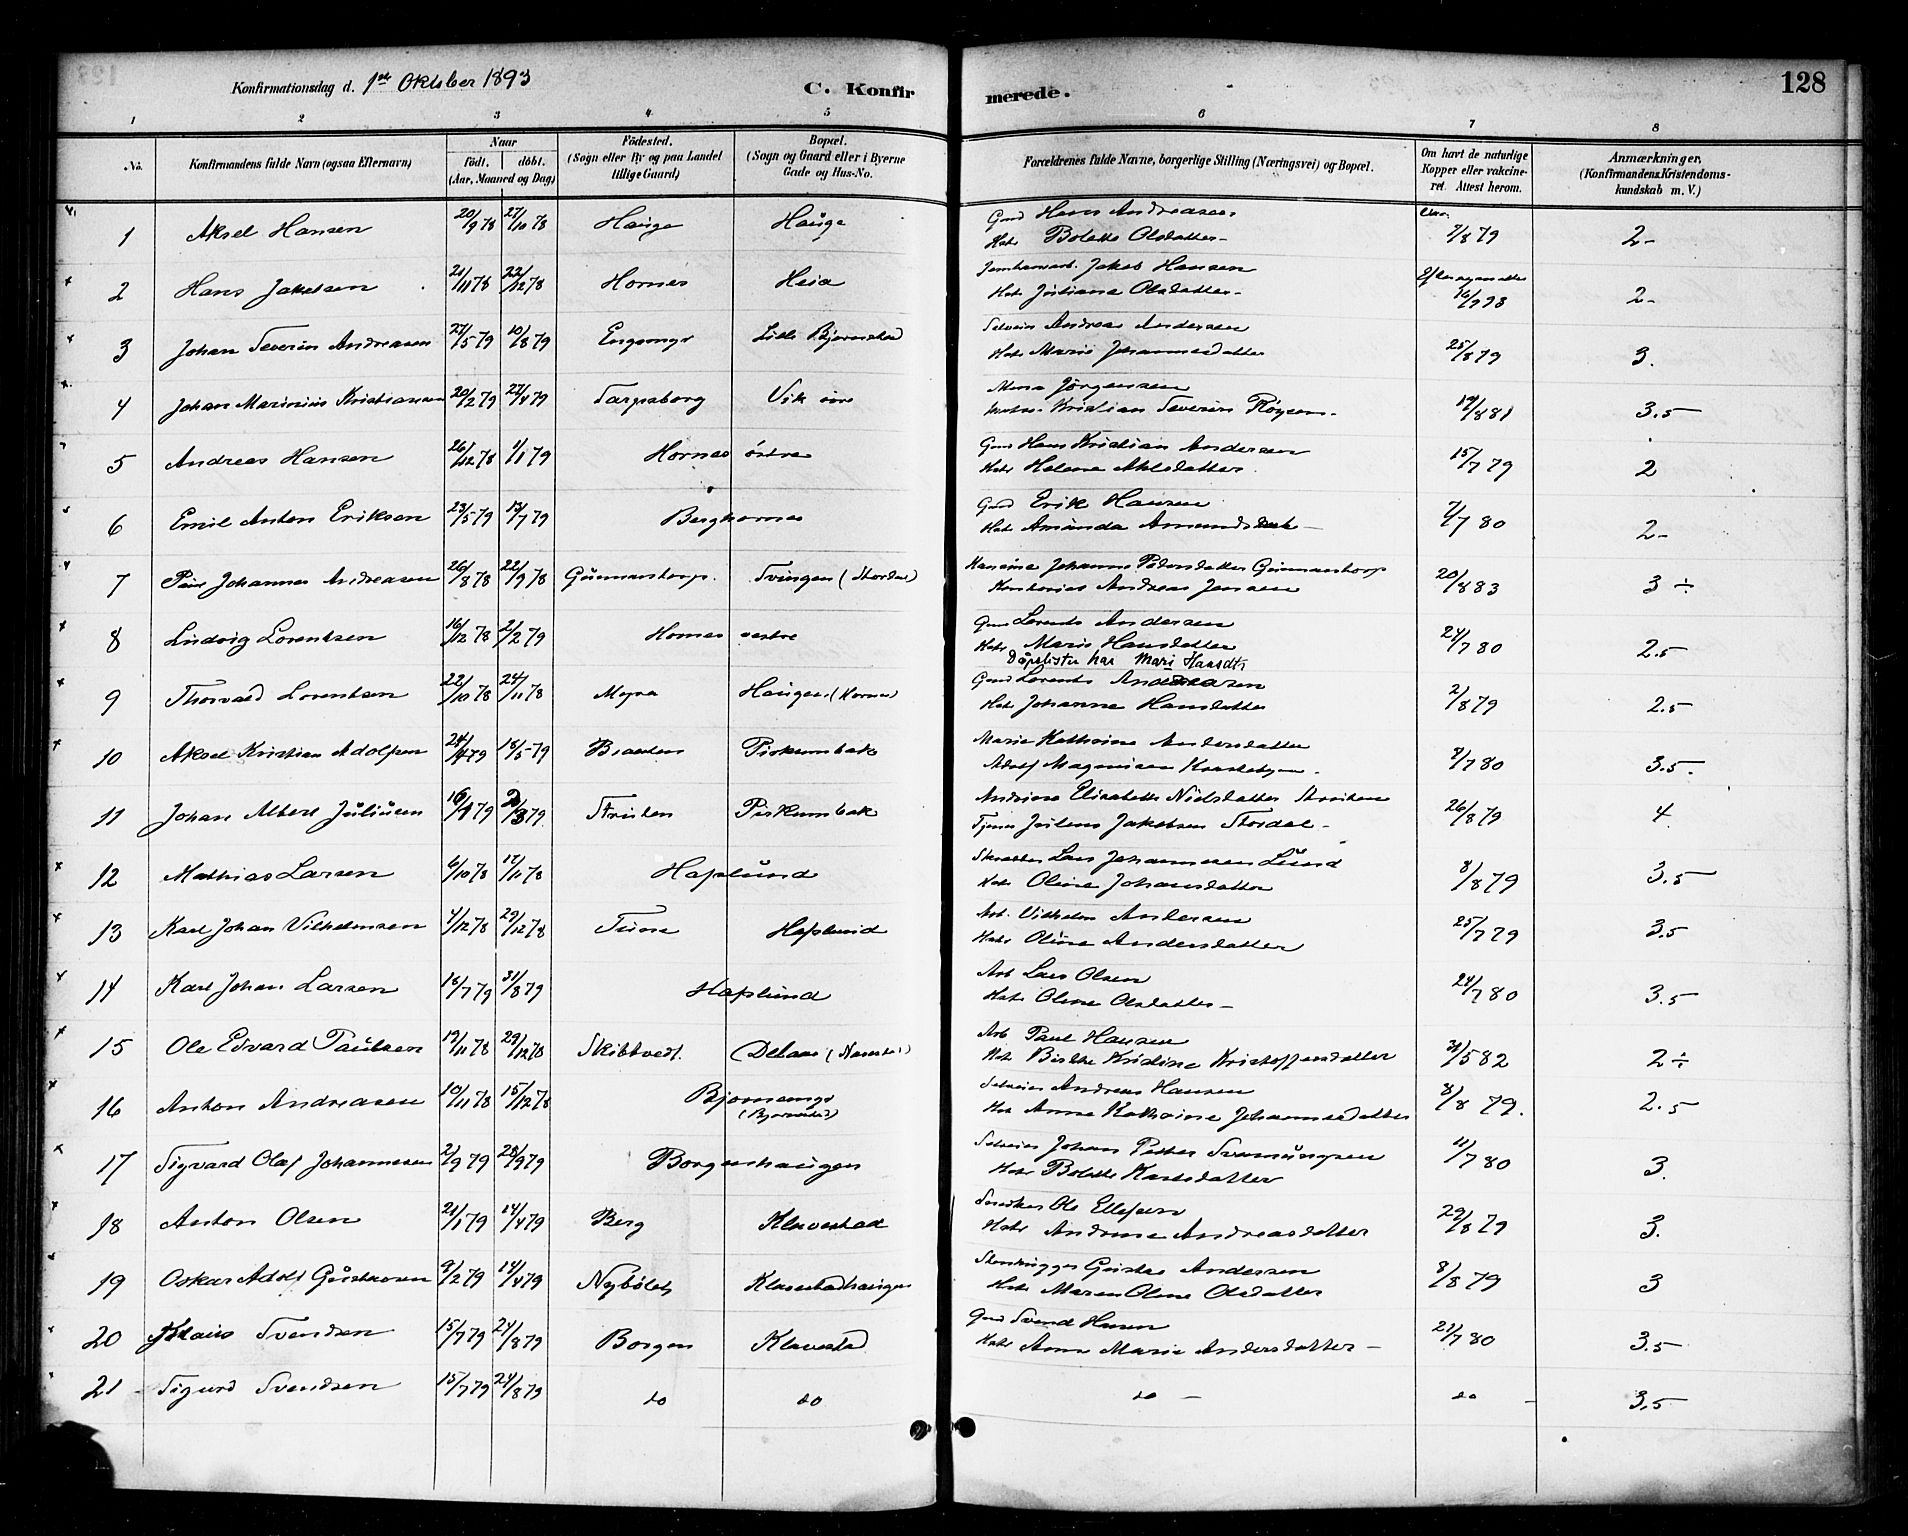 Konfirmationsdag d. 1ste Oktober 1893
C. Konfirmerede.
128
1 2 3 4 5 6 7 8
No.
Konfirmandens fulde Navn (ogsaa Efternavn)
Naar
födt. döbt.
(Aar, Maaned og Dag)
Födested.
(Sogn eller By og paa Landet
tillige Gaard)
Bopæl.
(Sogn og Gaard eller i Byerne
Gade og Hus-No.
Forældrenes fulde Navne, borgerlige Stilling (Næringsvei) og Bopæl.
Om havt de naturlige
Kopper eller vakcine-
ret. Attest herom.
Anmærkninger,
(Konfirmandens Kristendoms-
kundskab m. V.)
1 Aksel Hansen 20/9 78 27/10 78 Hauge Hauge Gmd Hans Andreasen 7/8 79 2-
Hstr Bolette Olsdatter-
2 Hans Jakobsen 21/11 78 22/12 78 Hornes Heia Jakob Hansen 2-
Hstr Juliane Olsdatter-
3 Johan Severin Andreasen 27/5 79 10/8 79 Engemyr Lille Bjørnstad Selveier Andreas Andersen 25/8 79 3.
Hstr Marie Johannesdatter
4 Johan Marinius Kristiansen 20/2 79 27/4 79 Sarpsborg Vik Jörgensen 19/8 81 3.5-
Kristian Severin
5 Andreas Hansen 26/12 78 1/1 79 Hornes östre Gmd Hans Kristian Andersen 15/7 79 2
Hstr Helene
6 Emil Anton Eriksen 23/5 79 13/7 79 Berghornes Gmd Erik Hansen 7/7 80 2-
Hstr Amanda
7 Johannes Andreasen 26/8 78 22/9 78 Gunnarstorp. Svingen (Stordal) Johanne Pedersdatter Gunnarstorp 20/8 83 3 ÷
Andreas Jensen
8 Ludvig Lorentsen 16/12 78 2/2 79 Hornes vestre Gmd Lorents Andersen 24/7 80 2.5
Hstr Marie Hansdatter
Dåpslister har Mari Hansdt.
9 Thorvald Lorentsen 22/10 78 24/11 78 Myra Haugen (Hornes) Gmd Lorents Andreasen 2/8 79 2.5
Hstr Johanne Hansdatter
10 Aksel Kristian Adolfsen 24/4 79 18/5 79 Braaten Piskumbak Marie Kathrine Andersdatter 8/7 80 3.5.
Adolf Magnusen
11 Johan Albert Juliussen Piskumbak Andrine Elisabeth Nielsdatter 26/8 79 4
Julius Jakobsen Stordal-
12 Mathias Larsen 6/10 78 17/11 78 Haslund Skrædder Lars Johannesen Lund 8/8 79 3.5
Hstr Oline Johansdatter
13 Karl Johan Vilhelmsen 4/12 78 29/12 78 Tune Haslund Arb. Vilhelm Andersen 25/7 79 3.5
Hstr Oline Andersdatter
14 Karl Johan Larsen 18/7 79 31/8 79 Haslund Arb Lars Olsen 24/7 80 3.5
Hstr Oline Olsdatter-
15 Ole Edvard Paulsen 19/11 78 29/12 78 Skibtvedt. Arb Paul Hansen 31/5 82 2 ÷
Hst Kristoffersdatter
16 Anton Andreasen 10/11 78 15/12 78 Bjørnemyr Selveier Andreas Hansen 8/8 79. 2.5
(Bjørnstad) Hst Anne Kathrine Johannesdatter
17 Sigvard Olaf Johannesen 2/9 79 28/9 79 Borgenhaugen Selveier Johan Petter 11/7 80 3.
Hstr Bolette Karlsdatter
18 Anton Olsen 21/1 79 14/4 79 Berg Klavestad Ole Ellefsen 29/8 79 3.
Hstr Andrine Andreasdatter
19 Oskar Adolf Gustavsen 9/2 79 14/4 79 Nybölet Klavestadhaugen Stenhugger Gustav Andersen 8/8 79 3
Hstr Maren Oline Olsdatter
20 Klaus Svendsen 15/7 79 24/8 79 Borgen Klavestad Gmd Svend Hansen 21/7 80 3.5
Hstr Anne Marie Andersdatter-
21 Sigurd Svendsen 15/7 79 24/8 79 do do do - do - 3.5